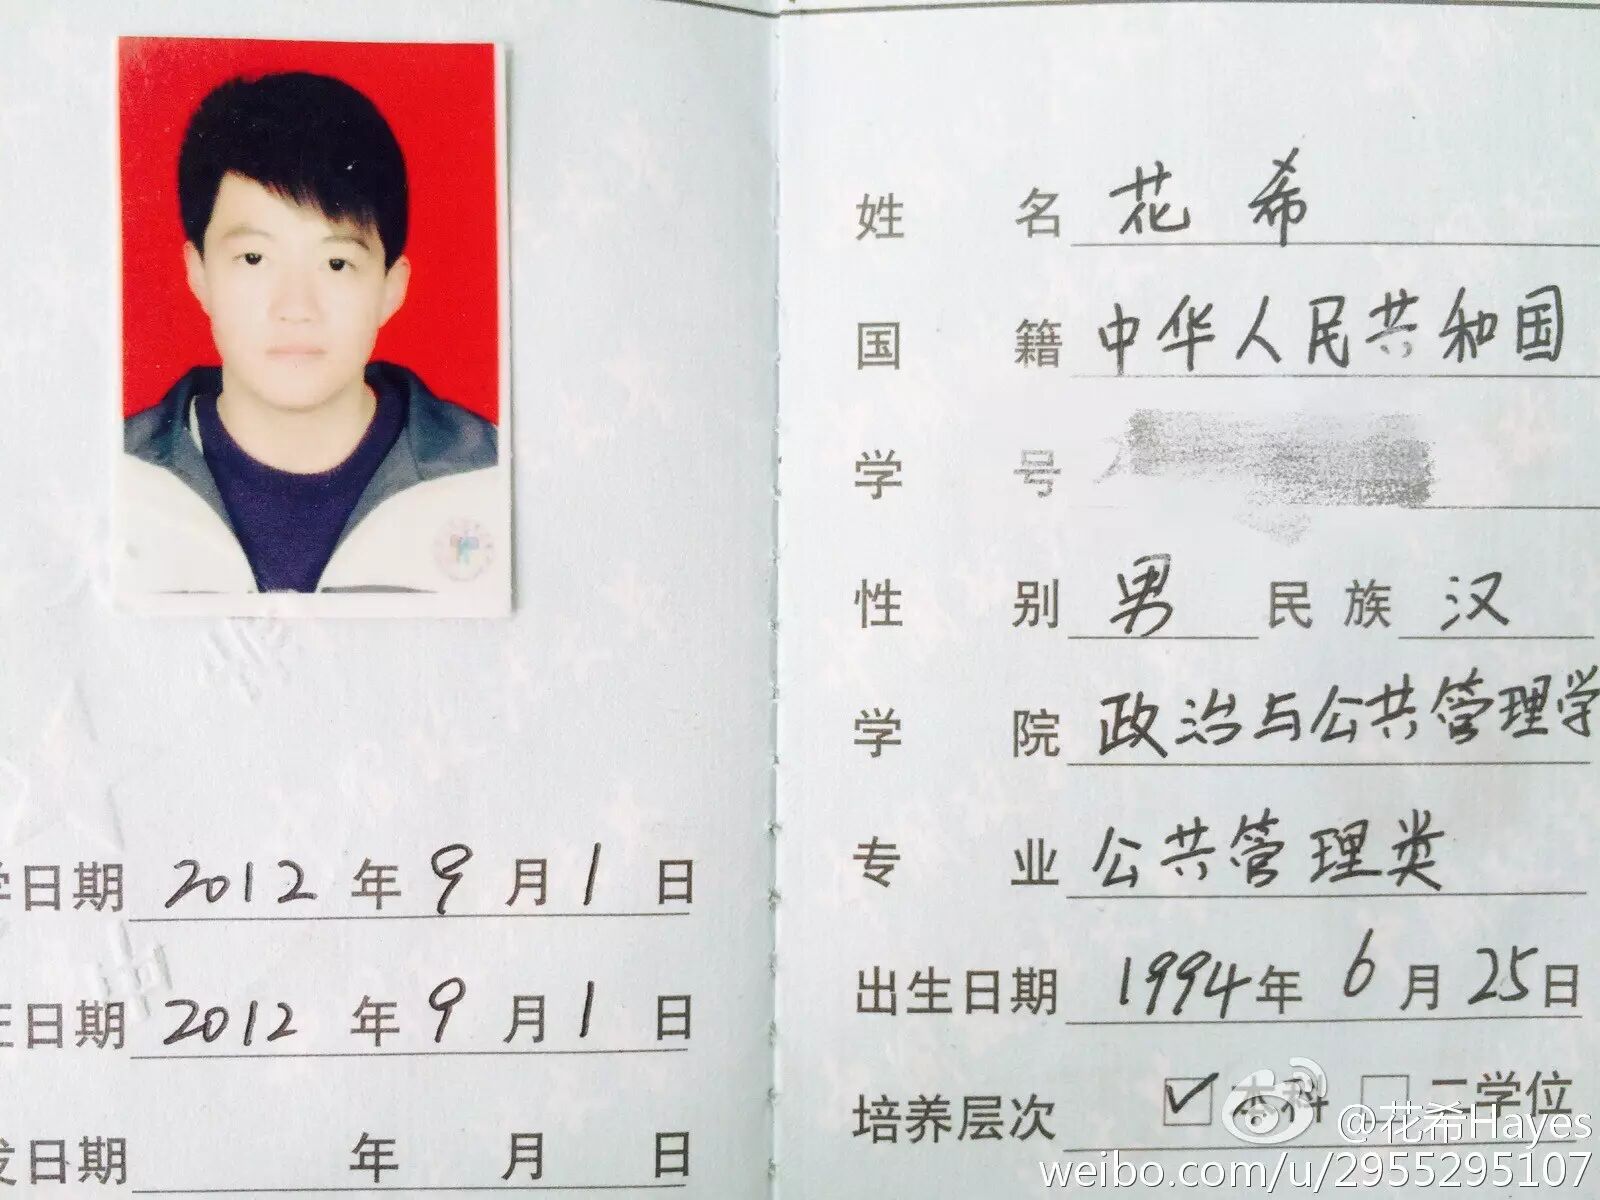 学日期 2012 年 9 月 1 日
日期 2012 年 9 月 1 日
发日期 年 月 日
姓 名 花 希
国 籍 中华人民共和国
学 号
性 别 男 民 族 汉
学 院 政治与公共管理学
专 业 公共管理类
出生日期 1994年 6 月 25日
培养层次 ✓ 本科 □ 二学位
@花希Hayes
weibo.com/u/2955295107